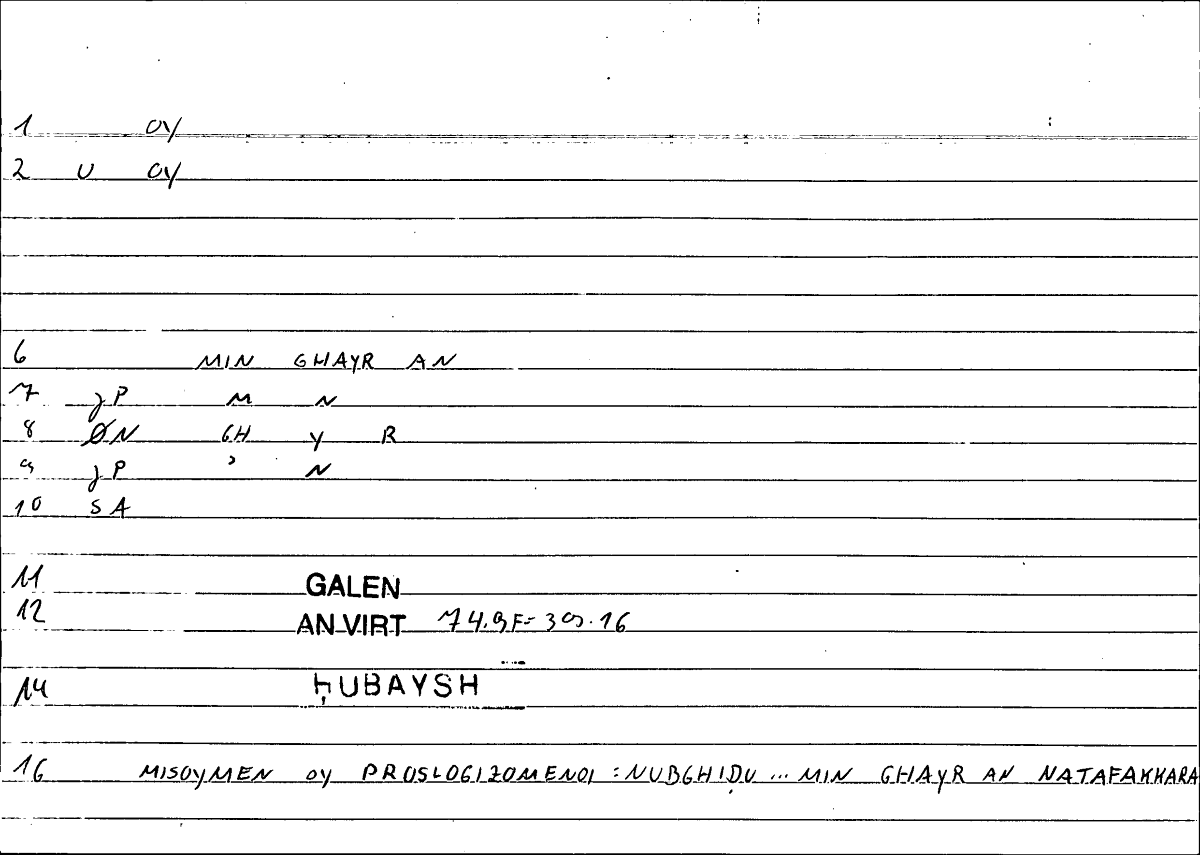 1 OY
2 U OY
6 MIN GHAYR AN
7 JP M N
8 ØN GH Y R
9 JP ʾ N
10 SA
11 GALEN
12 AN VIRT 74.9F=39.16
14 ḤUBAYSH
16 MISOYMEN OY PROSLOGIZOMENOI : NUBGHIḌU ... MIN GHAYR AN NATAFAKKARA